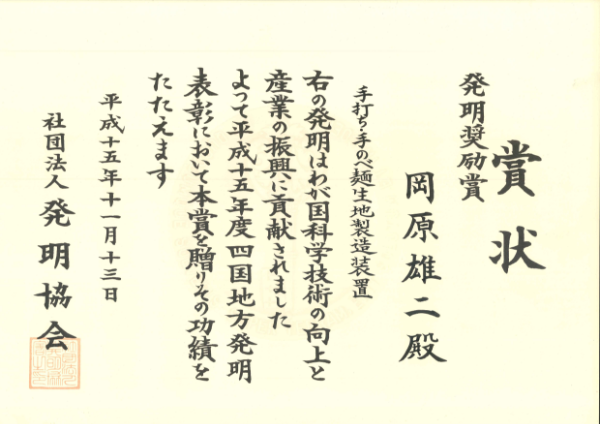 賞状
発明奨励賞
岡原雄二殿
手打ち・手のべ麺生地製造装置
右の発明はわが国科学技術の向上と
産業の振興に貢献されました
よって平成十五年度四国地方発明
表彰において本賞を贈りその功績を
たたえます
平成十五年十一月十三日
社団法人発明協会